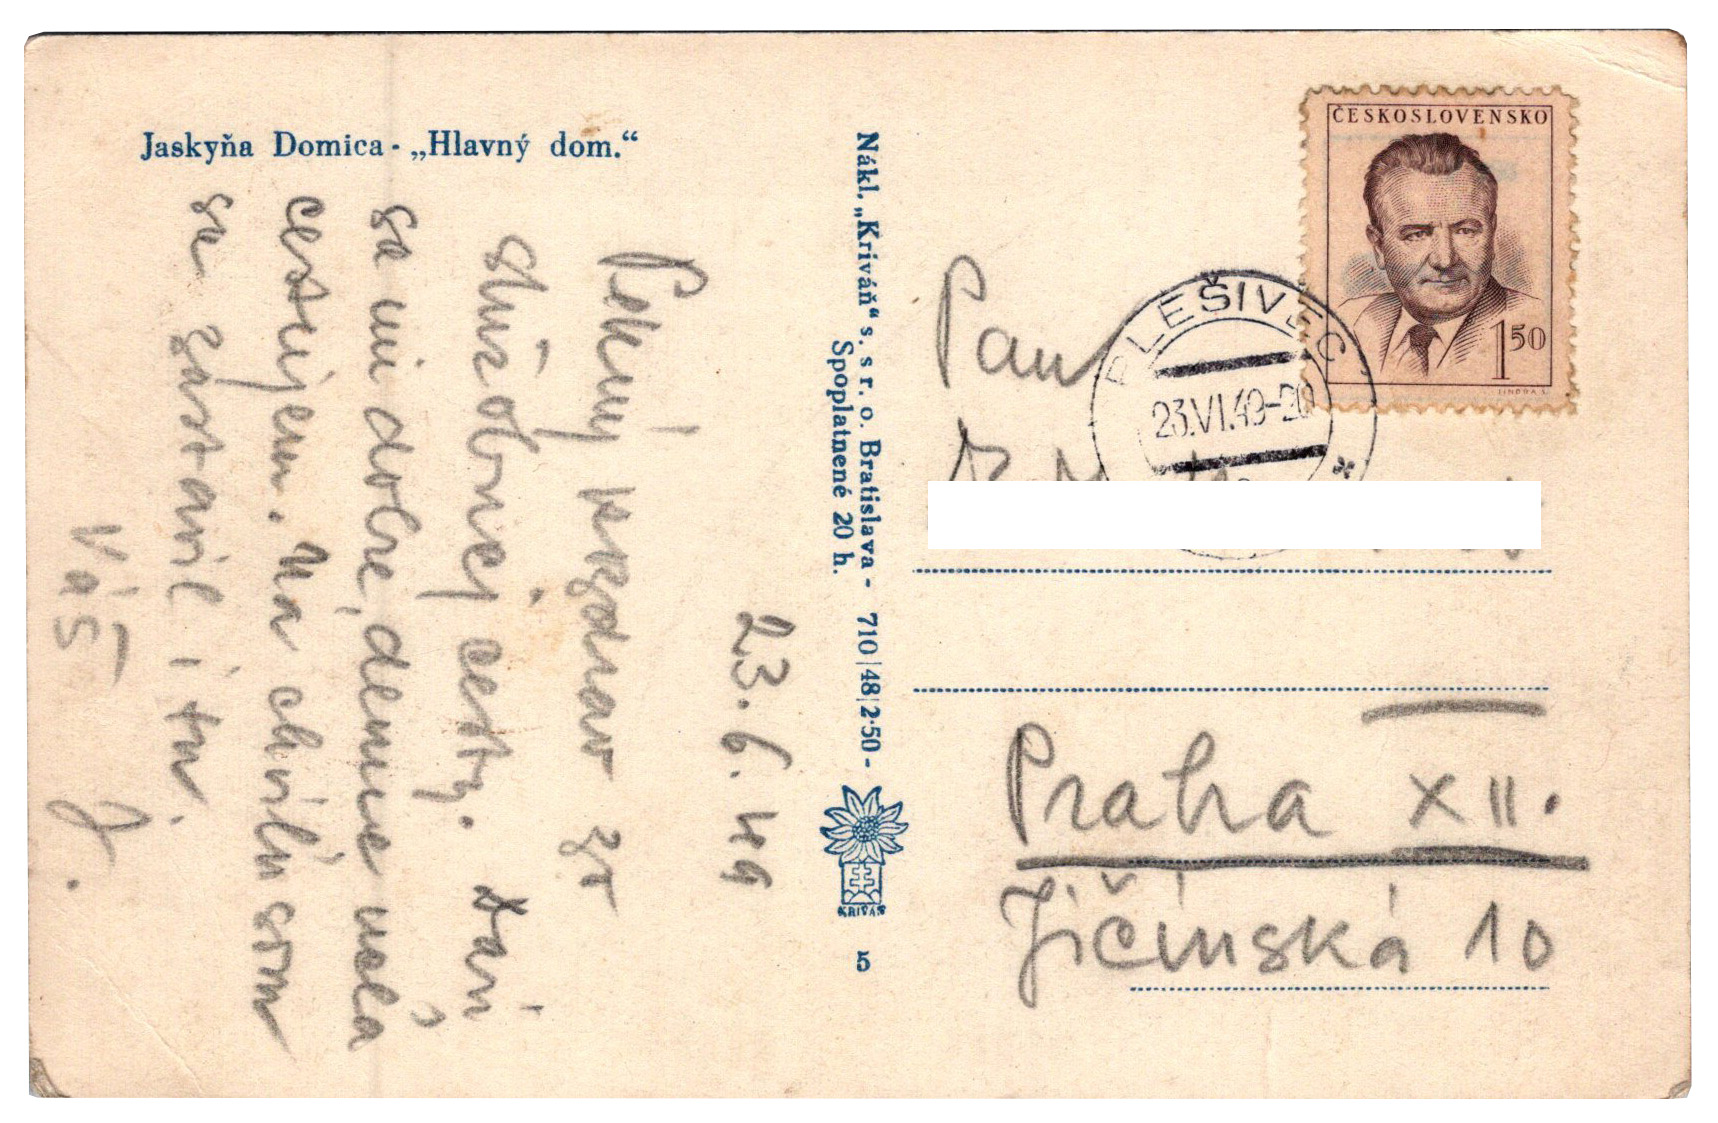 Jaskyňa Domica - „Hlavný dom.“
23. 6. 49
Pekný pozdrav zo
služobnej cesty. Darí
sa mi dobre, denne veľa
cestujem. Na chvíľu som
sa zastavil i tu.
Váš J.
Nákl. „Kriváň“ s. s r. o. Bratislava - 710|48|2·50 -
Spoplatnené 20 h.
KRIVÁŇ
5
ČESKOSLOVENSKO
1 50
PLEŠIVEC
23.VI.49-20
Pan
Praha XII.
Jičínská 10